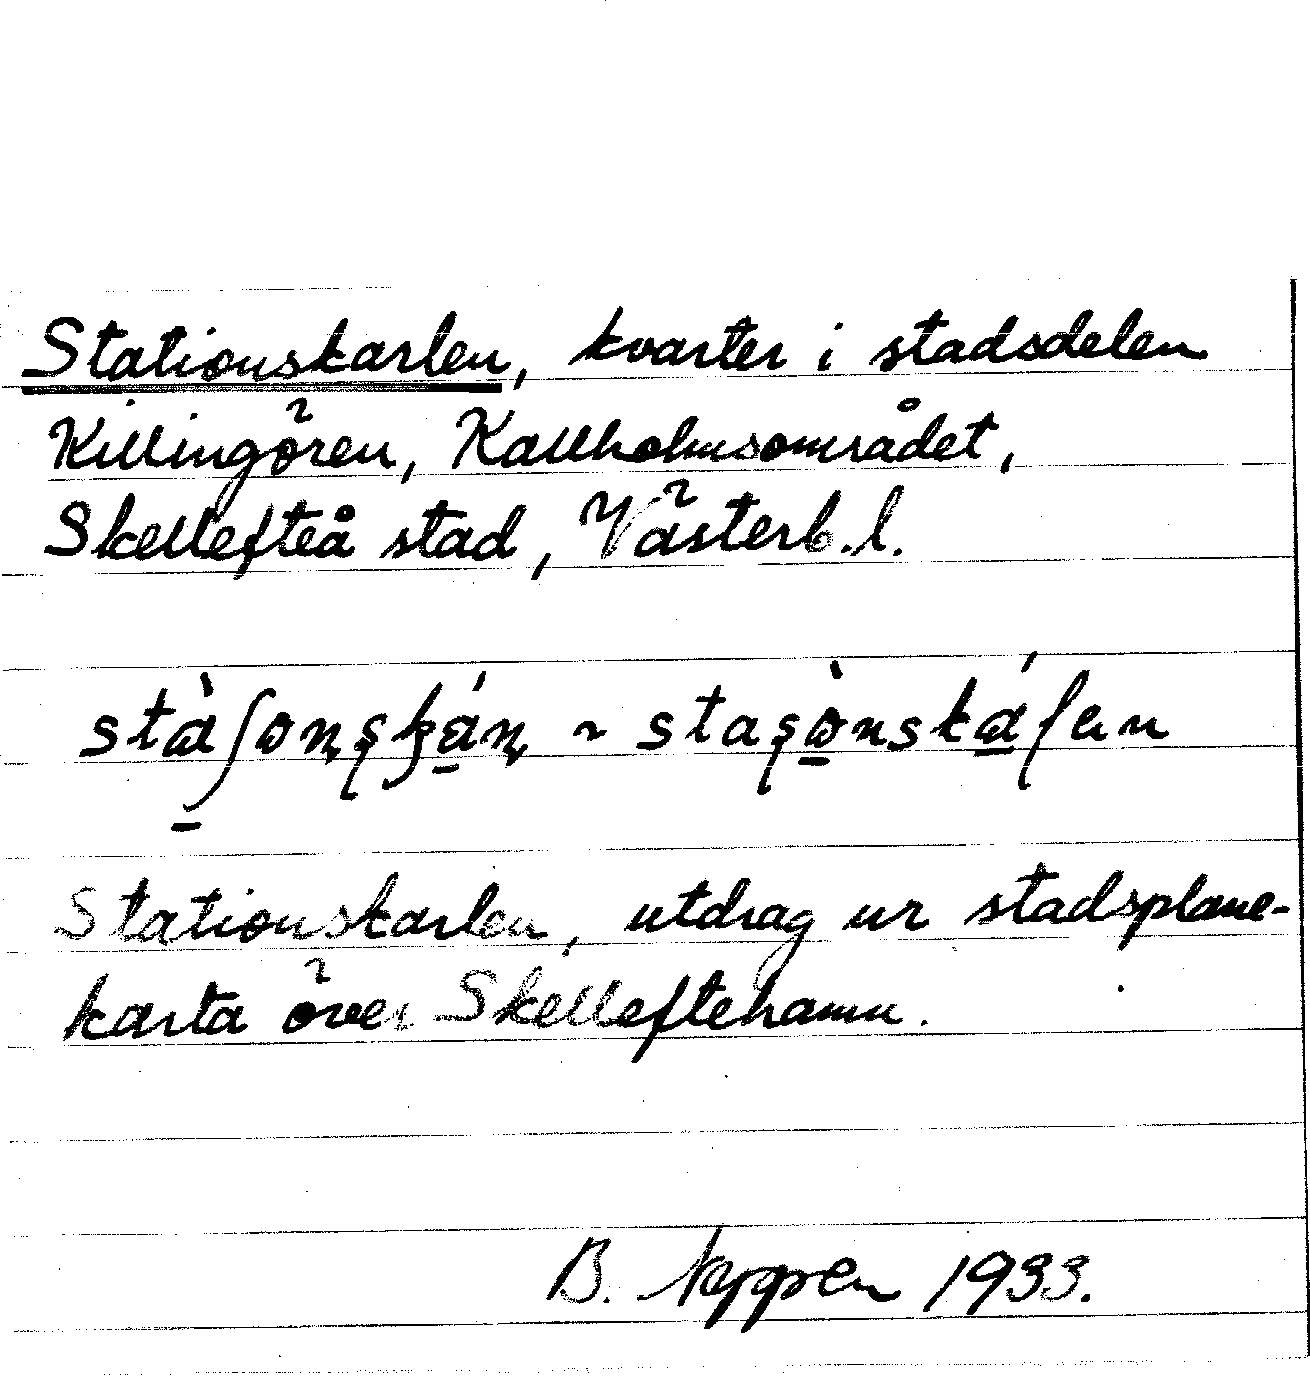 Stationskarlen, kvarter i stadsdelen
Killingören, Kallholmsområdet,
Skellefteå stad, Västerb. l.
Stationskarlen, utdrag ur stadsplane-
karta över Skelleftehamn.
B. 1933.